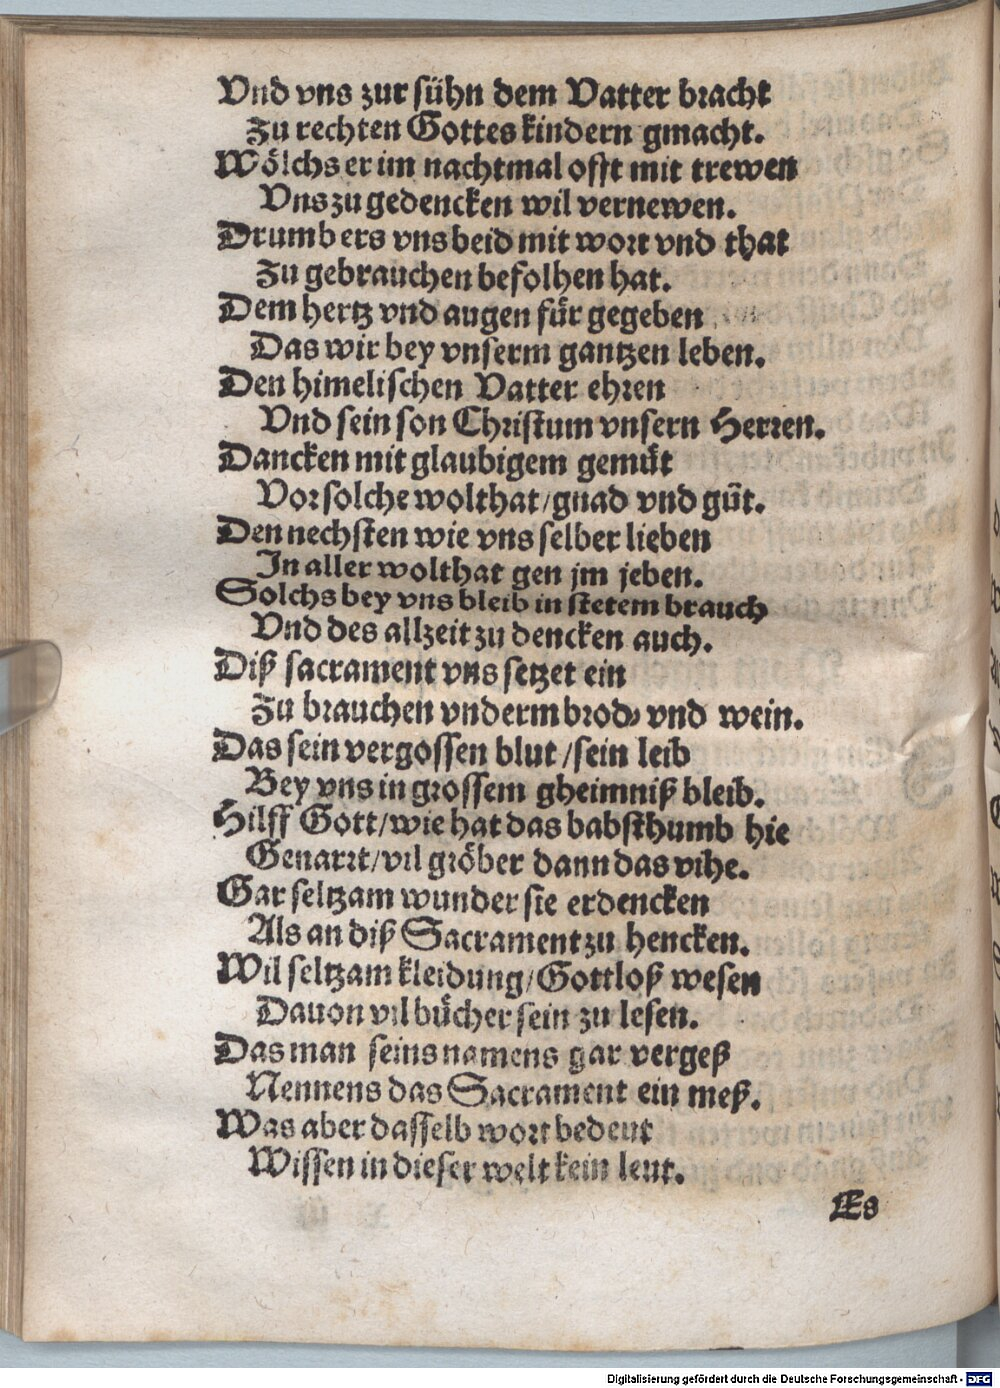 Vnd vns zur sühn dem Vatter bracht
Zu rechten Gottes kindern gmacht.
Wölchs er im nachtmal offt mit trewen
Vns zu gedencken wil vernewen.
Drumb ers vns beid mit wort vnd that
Zu gebrauchen befolhen hat.
Dem hertz vnd augen für gegeben
Das wir bey vnserm gantzen leben.
Den himelischen Vatter ehren
Vnd sein son Christum vnsern Herren.
Dancken mit glaubigem gemüt
Vor solche wolthat/gnad vnd güt.
Den nechsten wie vns selber lieben
In aller wolthat gen jm jeben.
Solchs bey vns bleib in stetem brauch
Vnd des allzeit zu dencken auch.
Diß sacrament vns setzet ein
Zu brauchen vnderm brod/ vnd wein.
Das sein vergossen blut/sein leib
Bey vns in grossem gheimniß bleib.
Hilff Gott/wie hat das babsthumb hie
Genarrt/vil gröber dann das vihe.
Gar seltzam wunder sie erdencken
Als an diß Sacrament zu hencken.
Wil seltzam kleidung/Gottloß wesen
Dauon vil bücher sein zu lesen.
Das man seins namens gar vergeß
Nennens das Sacrament ein meß.
Was aber dasselb wort bedeut
Wissen in dieser welt kein leut.
Es
Digitalisierung gefördert durch die Deutsche Forschungsgemeinschaft - DFG